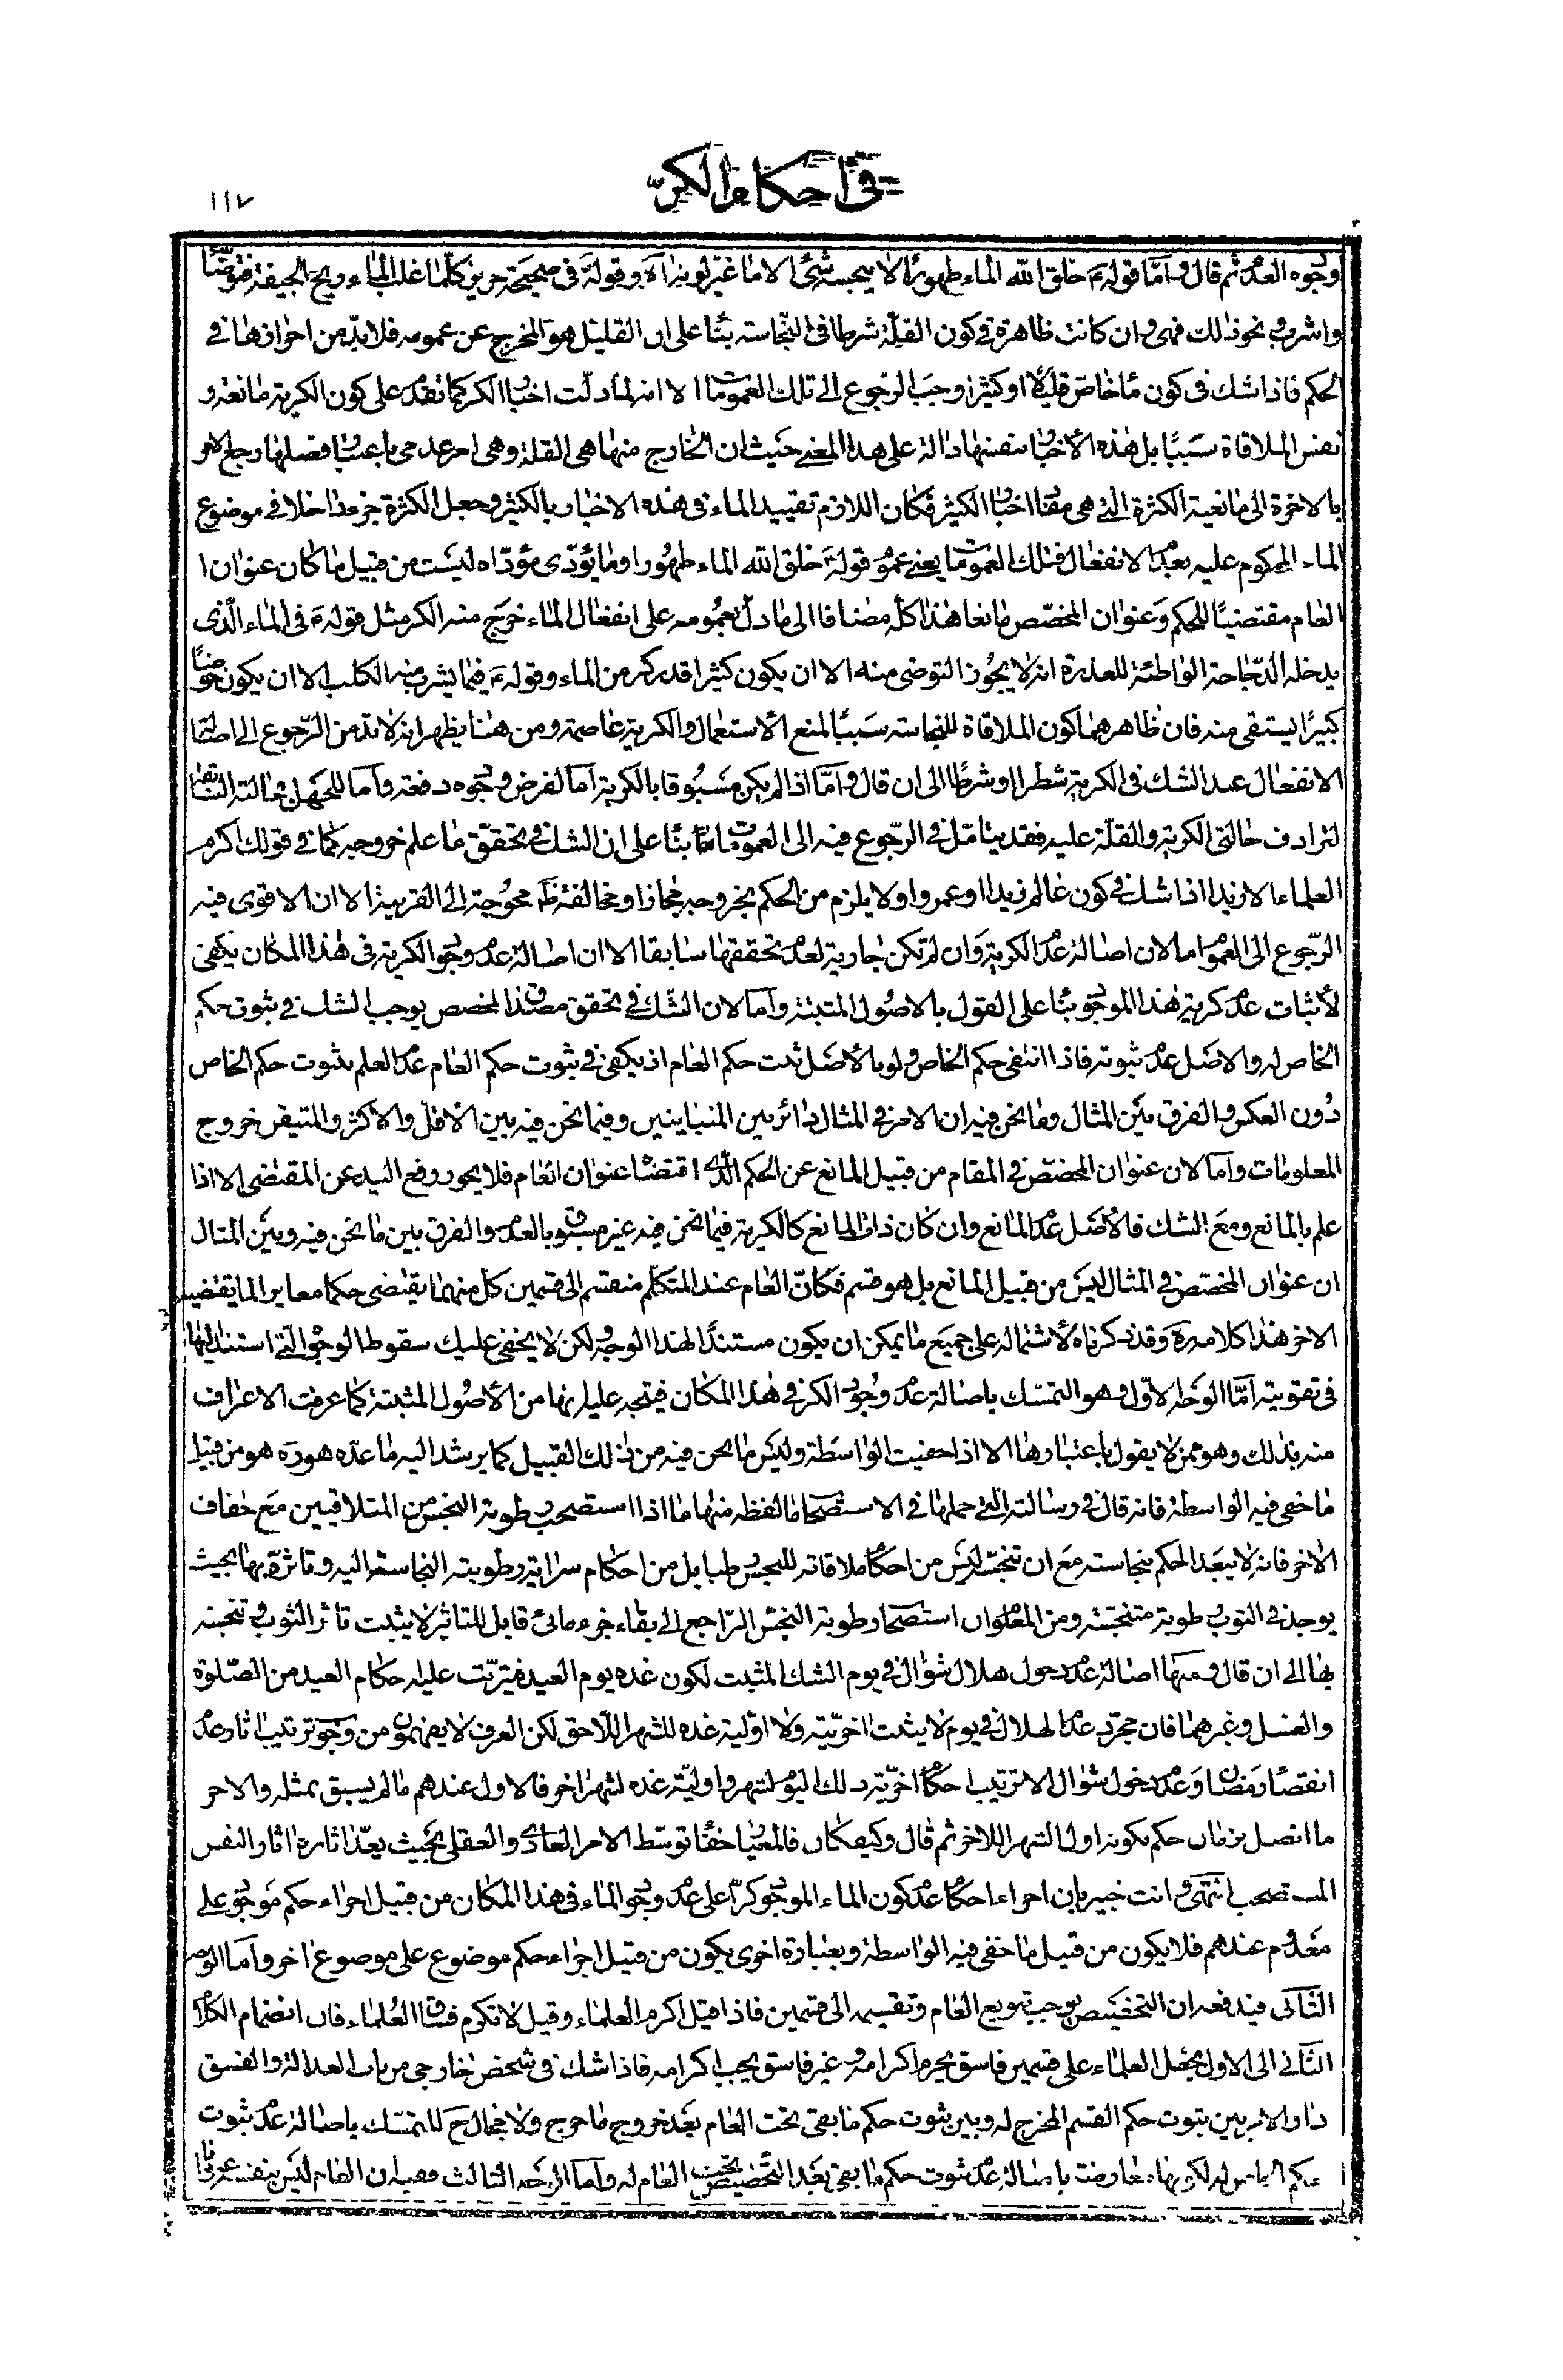 في أحكام الكرّ
١١٧
وجوه العدم ثم قال و أمّا قوله ع خلق الله الماء طهورًا لا ينجسه شئ الا ما غيّر لونه اه و قوله في صحيحة حريز كلّما غلب الماء ريح الجيفة فتوضّأ
واشرب و نحو ذلك فهي و ان كانت ظاهرة في كون القلّة شرطا في النّجاسة بناء على ان القليل هو المخرج عن عمومه فلا بدّ من احرازها في
الحكم فاذا شك في كون ماء خاصّ قليلًا او كثيرًا وجب الرّجوع الى تلك العمومات الا انه لما دلّت اخبار الكر كما تقدم على كون الكرية مانعة و
نفس الملاقاة سببًا بل هذه الأخبار بنفسها دالة على هذا المعنى حيث ان الخارج منها هي القلة وهي امر عدمي باعتبار فصلها رجع الامر
بالاخرة الى مانعية الكثرة التي هي مفاد اخبار الكثير فكان اللازم تقييد الماء في هذه الاخبار بالكثير و جعل الكثرة جزء داخلا في موضوع
الماء المحكوم عليه بعدم الانفعال فتلك العمومات يعني عموم قوله ع خلق الله الماء طهورا وما يؤدّى مؤدّاه ليست من قبيل ما كان عنوان ا
العام مقتضيًا للحكم وعنوان المخصّص مانعا هذا كله مضافا الى ما دلّ بعمومه على انفعال الماء خرج منه الكر مثل قوله ع في الماء الّذى
يدخله الدّجاجة الواطئة للعذرة انه لا يجوز التوضى منه الا ان يكون كثيرا قدر كر من الماء و قوله ع فيما يشرب منه الكلب الا ان يكون حوضًا
كبيرًا يستقى منه فان ظاهرهما كون الملاقاة للنجاسة سببًا لمنع الأستعمال والكرية عاصمة ومن هنا يظهر انه لا بد من الرّجوع الى اصالة
الانفعال عند الشك في الكرية شطرا او شرطًا الى ان قال و أمّا اذا لم يكن مسبوقا بالكرية اما لفرض وجوده دفعة و اما للجهل بحالته السّابقة
لترادف حالتى الكرية والقلّة عليه فقد يتأمّل في الرّجوع فيه الى العمومات بناء على ان الشك في تحقّق ما علم خروجه كما في قولك اكرم
العلماء الا زيدا اذا شك في كون عالم زيدا او عمروا ولا يلزم من الحكم بخروجه مجازا و مخالفة ظ محوجة الى القرينة الا ان الاقوى فيه
الرّجوع الى العموم اما لان اصالة عدم الكرية و ان لم تكن جارية لعدم تحققها سابقا الا ان اصالة عدم وجود الكرية في هذا المكان يكفى
لأثبات عدم كرية هذا الموجود بناء على القول بالاصول المثبتة و اما لان الشّك في تحقق مصداق المخصص يوجب الشك في ثبوت حكم
الخاص له والاصل عدم ثبوته فاذا انتفى حكم الخاص و لو بالأصل ثبت حكم العام اذ يكفى في ثبوت حكم العام عدم العلم بثبوت حكم الخاص
دون العكس و الفرق بين المثال وما نحن فيه ان الامر في المثال دائر بين المتباينين وفيما نحن فيه بين الاقلّ والاكثر والمتيقن خروج
المعلومات و اما لان عنوان المخصّص في المقام من قبيل المانع عن الحكم الّذى اقتضاه عنوان العام فلا يجوز رفع اليد عن المقتضى الا اذا
علم بالمانع و مع الشك فالأصل عدم المانع وان كان ذات المانع كالكرية فيما نحن فيه غير مسبوق بالعدم والفرق بين ما نحن فيه و بين المثال
ان عنوان المخصّص في المثال ليس من قبيل المانع بل هو قسم فكانّ العام عند المتكلّم منقسم الى قسمين كل منهما يقتضى حكما مغايرا لما يقتضيه
الاخر هذا كلامه ره وقد ذكرناه لأشتماله على جميع ما يمكن ان يكون مستندًا لهذا الوجه لكن لا يخفى عليك سقوط الوجوه الّتي استند اليها
في تقويته أمّا الوجه الاوّل و هو التمسّك باصالة عدم وجود الكر في هذا المكان فيتجه عليه انها من الأصول المثبتة كما عرفت الاعتراف
منه بذلك وهو ممن لا يقول باعتبارها الا اذا خفيت الواسطة وليس ما نحن فيه من ذلك القبيل كما يرشد اليه ما عدّه هو ره من قبيل
ما خفى فيه الواسطة فانه قال في رسالته التي عملها في الاستصحاب ما لفظه منها ما اذا استصحب رطوبة النجس من المتلاقيين مع جفاف
الاخر فانه لا يبعد الحكم بنجاسته مع ان تنجّسه ليس من احكام ملاقاته للنجس رطبا بل من احكام سراية رطوبة النجاسة اليه و تاثره بها بحيث
يوجد في الثوب رطوبة متنجّسة ومن المعلوم ان استصحاب رطوبة النجس الرّاجع الى بقاء جزء مائى قابل للتاثير لا يثبت تاثر الثوب و تنجسه
بها الى ان قال و منها اصالة عدم دخول هلال شوال في يوم الشك المثبت لكون غده يوم العيد فيترتّب عليه احكام العيد من الصّلوة
والغسل وغيرهما فان مجرّد عدم الهلال في يوم لا يثبت اخريّته ولا اوّلية غده للشهر اللّاحق لكن العرف لا يفهمون من وجوب ترتيب اثار عدم
انقضاء رمضان و عدم دخول شوال الا ترتيب احكام اخريّة ذلك اليوم لشهر و اوليّة غده لشهر اخر فالاول عندهم ما لم يسبق بمثله والاخر
ما اتصل بزمان حكم بكونه اول الشهر اللاخر ثم قال وكيف كان فالمعيار خفاء توسّط الامر العادى والعقلى بحيث يعدّ اثاره اثار النفس
المستصحب انتهى و انت خبير بان اجراء احكام عدم كون الماء الموجود كرّا على عدم وجود الماء في هذا المكان من قبيل اجراء حكم موجود على
معدوم عندهم فلا يكون من قبيل ما خفى فيه الواسطة وبعبارة اخرى يكون من قبيل اجراء حكم موضوع على موضوع اخر و اما الوجه
الثّانى فيدفعه ان التخصيص يوجب تنويع العام و تقسيمه الى قسمين فاذا قيل اكرم العلماء و قيل لا تكرم فساق العلماء فان انضمام الكلام
الثّانى الى الاول يجعل العلماء على قسمين فاسق يحرم اكرامه و غير فاسق يجب اكرامه فاذا شك في شخص خارجى من باب العدالة والفسق
دار الامر بين ثبوت حكم القسم المخرج له و بين ثبوت حكم ما بقى تحت العام بعد خروج ما خرج ولا مجال ح للتمسّك باصالة عدم ثبوت
حكم الخاص له لكونها معارضة باصالة عدم ثبوت حكم ما بقى بعد التّخصيص تحت العام له و اما الوجه الثالث ففيه ان العام ليس بنفسه عنوانا